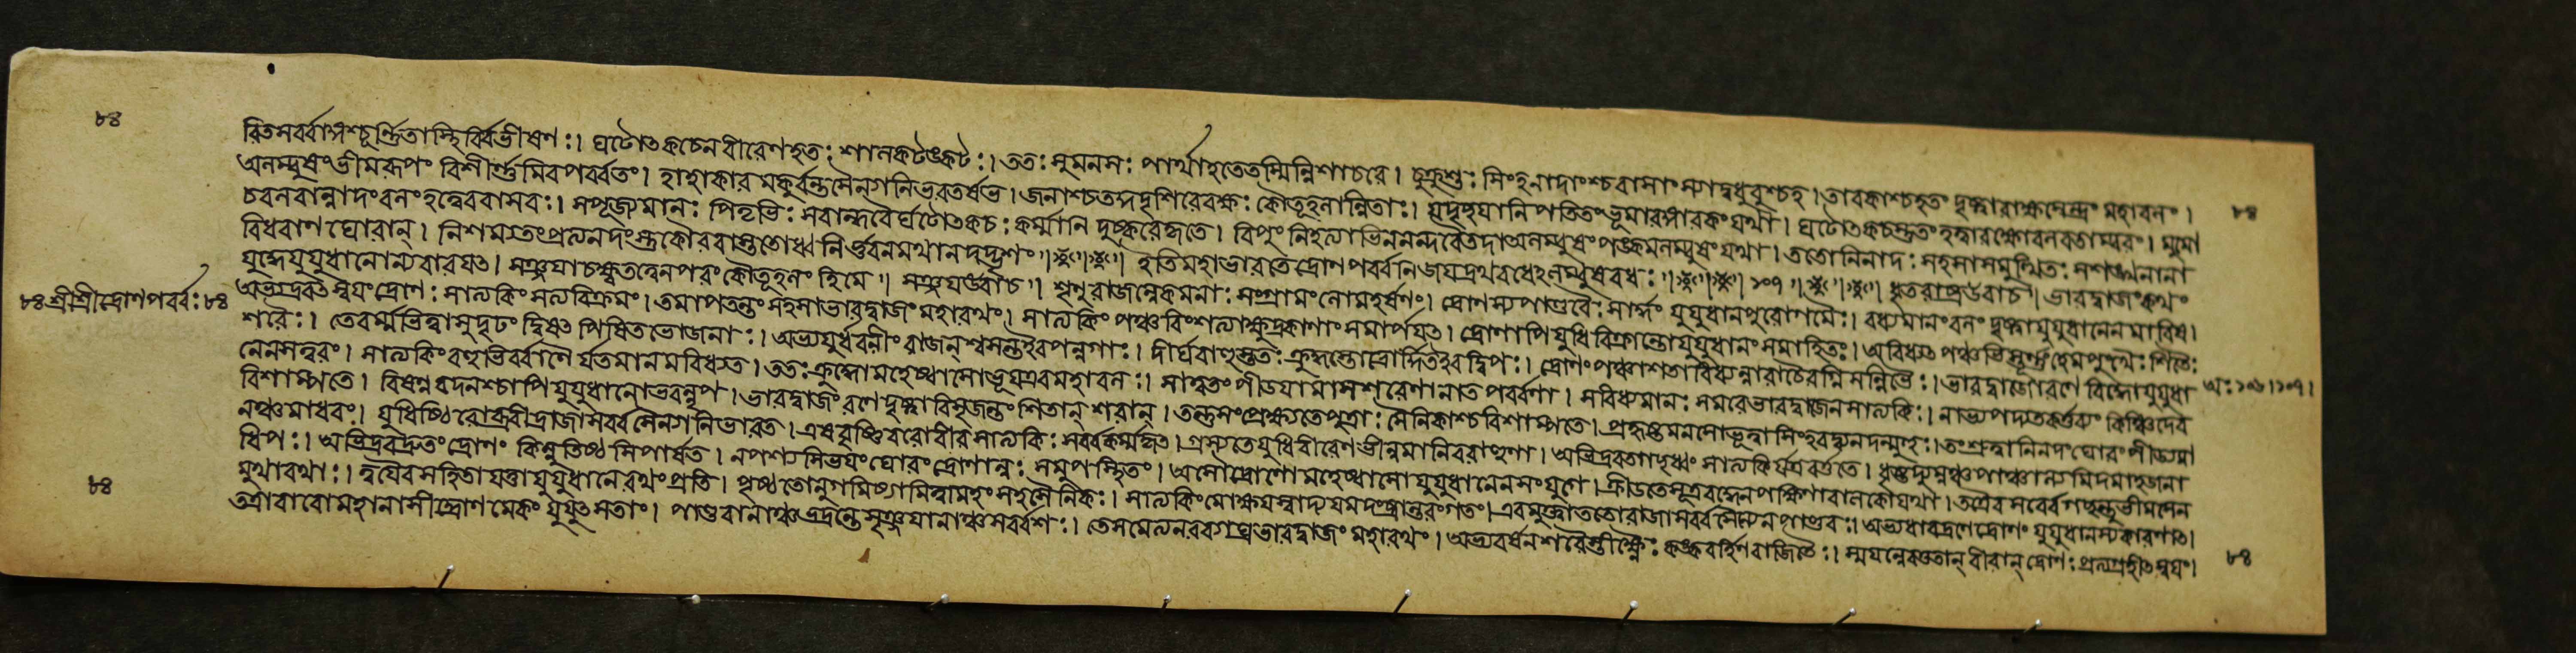 ৮৪
রিতসর্ব্বাঙ্গশ্চূর্ন্নিতাস্থির্বিভীষণঃ। ঘটোৎকচেন বীরেণ হতঃ শালকটঙ্কটঃ। ততঃ সুমনসঃ পার্থাহতেতস্মিন্নিশাচরে। চুক্রুশুঃ সিংহনাদাংশ্চ বাসাং স্যাদুধুবুশ্চহ। তাবকাশ্চহতং দৃষ্ট্বারাক্ষসেন্দ্রং মহাবলং।
অলম্বুষং ভীমরূপং বিশীর্ণমিবপর্ব্বতং। হাহাকারমকুর্ব্বন্তসৈন্যানিভরতর্ষভ। জনাশ্চতদ্দদৃশিরেরক্ষঃ কৌতূহলান্বিতাঃ। যদৃচ্ছয়ানিপতিতং ভূমাবঙ্গারকং যথা। ঘটোৎকচস্তুতং হত্বারক্ষোবলবতাম্বরং। মুমো
চবলবান্নাদং বলং হত্বেববাসবঃ। সপূজ্যমানঃ পিতৃভিঃ সবান্ধবৈর্ঘটোৎকচঃ কর্ম্মাণি দুষ্করেকৃতে। রিপুং নিহত্যাভিননন্দবৈতদাঅলম্বুষং পক্বমলম্বুষং যথা। ততোনিনাদঃ সহসাসমুত্থিতঃ সশঙ্খনানা
বিধবাণ ঘোরান্। নিশম্যতং প্রত্যনদংস্তুকৌরবাস্ততোধ্বনির্ভুবনমথাস্পৃশদ্ভৃশং ॥ ইতিমহাভারতেদ্রোণপর্ব্বনিজয়দ্রথবধেঽলম্বুষবধঃ ॥ ১০৭ ॥ ধৃতরাষ্ট্রউবাচ। ভারদ্বাজং কথং
যুদ্ধেযুযুধানোন্যবারয়ৎ। সঞ্জয়াচক্ষ্বতত্বেনপরং কৌতূহলং হিমে ॥ সঞ্জয়উবাচ ॥ শৃণুরাজন্নেকমনাঃ সংগ্রামং লোমহর্ষণং। দ্রোণস্যপাণ্ডবৈঃ সার্দ্ধং যুযুধানপুরোগমৈঃ। বধ্যমানং বলং দৃষ্ট্বাযুযুধানেনমারিষ।
৮৪ শ্রীশ্রীদ্রোণপর্ব্বঃ ৮৪
অভ্যদ্রবৎ স্বয়ং দ্রোণঃ সাত্যকিং সত্যবিক্রমং। তমাপতন্তং সহসাভারদ্বাজং মহারথং। সাত্যকিং পঞ্চবিংশত্যাক্ষুদ্রকাণাং সমার্পয়ৎ। দ্রোণোপিযুধিবিক্রান্তোযুযুধানং সমাহিতঃ। অবিধ্যৎ পঞ্চভিস্তূর্ণং হেমপুঙ্খৈঃ শিতৈঃ
শরৈঃ। তেবর্ম্মভিত্বাসুদৃঢং দ্বিষৎ পিষিতভোজনাঃ। অভ্যযুর্ধরণীং রাজন্শ্বসন্তইবপন্নগাঃ। দীর্ঘবাহুস্ততঃ ক্রুদ্ধস্তোত্রার্দ্দিতইবদ্বিপঃ। দ্রোণং পঞ্চাশতাবিধ্যন্নারাচৈরগ্নিসন্নিভৈঃ। ভারদ্বাজোরণেবিদ্ধোযুযুধা
অঃ ১০৬।১০৭।
নেনসত্বরং। সাত্যকিং বহুভির্বাণৈর্যতমানমবিধ্যত। ততঃ ক্রুদ্ধোমহেষ্বাসোভূয়এবমহাবলঃ। সাত্বতং পীডয়ামাসশরেণানতপর্ব্বণা। সবিধ্যমানঃ সমরেভারদ্বাজেনসাত্যকিঃ। নাভ্যপদ্যতকর্ত্তব্যং কিঞ্চিদেব
বিশাম্পতে। বিষন্নবদনশ্চাপিযুযুধানোভবন্নৃপ। ভারদ্বাজং রণেদৃষ্ট্বাবিসৃজন্তং শিতান্ শরান্। তন্তুসংপ্রেক্ষ্যতেপুত্রাঃ সৈনিকাশ্চবিশাম্পতে। প্রহৃষ্টমনসোভূত্বাসিংহবদ্ব্যনদন্মুহুঃ। তংশ্রুত্বানিনদং ঘোরং পীড্যমা
নঞ্চমাধবং। যুধিষ্ঠিরোব্রবীদ্রাজাসর্ব্বসৈন্যানিভারত। এষবৃষ্ণিবরোবীরসাত্যকিঃ সর্ব্বকর্ম্মকৃত। গ্রস্যতেযুধিবীরেণভানুমানিবরাহুণা। অভিদ্রবতগচ্ছধ্বং সাত্যকির্যত্রবর্ত্ততে। ধৃষ্টদ্যুম্নঞ্চপাঞ্চাল্যমিদমাহজনা
ধিপঃ। অভিদ্রবদ্রুতং দ্রোণং কিন্নুতিষ্ঠসিপার্ষত। নপশ্যসিভয়ং ঘোরং দ্রোণান্নঃ সমুপস্থিতং। অসৌদ্রোণোমহেষ্বাসোযুযুধানেনসংযুগে। ক্রীডতেসূত্রবদ্ধেনপক্ষিণাবালকোযথা। তত্রৈবসর্ব্বেগচ্ছন্তুভীমসেন
মুখারথাঃ। ত্বয়ৈবসহিতাযত্তাযুযুধানেরথং প্রতি। পৃষ্ঠতোনুগমিষ্যামিত্বামহং সহসৈনিকঃ। সাত্যকিংমোক্ষয়স্বাদ্যযমদংষ্ট্রান্তরংগতং। এবমুক্ত্বাততোরাজাসর্ব্বসৈন্যেনপাণ্ডবঃ। অভ্যধাবদ্রণেদ্রোণং যুযুধানস্যকারণাৎ।
তত্রারাবোমহানাসীদ্দ্রোণমেকং যুযুৎসতাং। পাণ্ডবানাঞ্চভদ্রন্তেসৃঞ্জয়ানাঞ্চসর্ব্বশঃ। তেসমেত্যনরব্যাঘ্রভারদ্বাজং মহারথং। অভ্যবর্ষনশরৈস্তীক্ষ্ণৈঃ কঙ্কবর্হিণবাজিতৈঃ। স্ময়ন্নেবতুতান্বীরান্দ্রোণঃ প্রত্যগ্রহীৎস্বয়ং।
৮৪
৮৪
৮৪